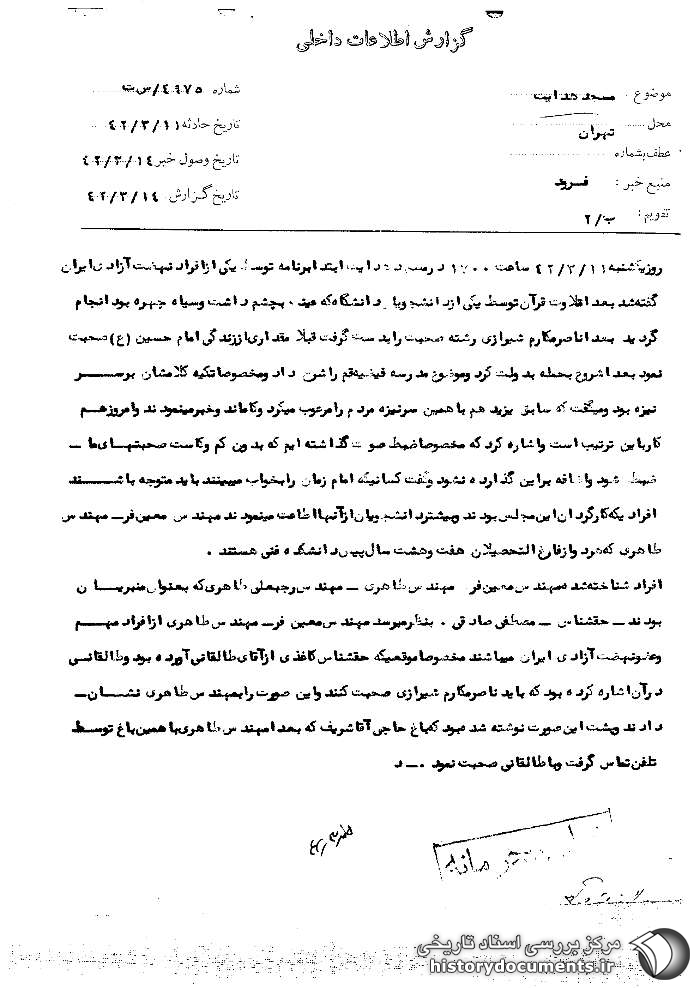 گزارش اطلاعات داخلی
موضوع : مسجد هدایت
شماره ۴۹۷۵/س ت
محل تهران
تاریخ حادثه ۴۲/۳/۱۱
عطف بشماره
تاریخ وصول خبر ۴۲/۳/۱۴
منبع خبر : فرود
تاریخ گزارش ۴۲/۳/۱۴
تقویم : ب/۲
روز یکشنبه ۴۲/۳/۱۱ ساعت ۱۷۰۰ در مسجد هدایت ابتدا برنامه توسط یکی از افراد نهضت آزادی ایران
گفته شد بعدا قلاوت قرآن توسط یکی از دانشجویان دانشگاه که عینک بچشم داشت و سیاه چهره بود انجام
گردید بعدا ناصر مکارم شیرازی رشته صحبت را بدست گرفت قبلا مقداری از زندگی امام حسین (ع) صحبت
نمود بعدا شروع بحمله بدولت کرد و موضوع مدرسه فیضیه قم را شرح داد و مخصوصا تکیه کلامشان بر سر
نیزه بود و میگفت که سابق یزید هم با همین سرنیزه مردم را مرعوب میکرد و کاماند و خبر مینمودند و امروز هم
کار باین ترتیب است و اشاره کرد که مخصوصا ضبط صوت گذاشته ایم که بدون کم و کاست صحبتهای ما ـ
ضبط شود و اضافه براین گذارده نشود و گفت کسانیکه امام زمان را بخواب میبینند باید متوجه باشند
افرادیکه کارگردان این مجلس بودند و بیشتر دانشجویان از آنها اطاعت مینمودند مهندس معین فر ـ مهندس
طاهری که هر دو از فارغ التحصیلان هفت و هشت سال پیش دانشکده فنی هستند .
افراد شناخته شده مهندس معین فر مهندس طاهری ـ مهندس رجبعلی طاهری که بعنوان میزبان
بودند ـ حقشناس ـ مصطفی صادقی . بنظر میرسد مهندس معین فر ـ مهندس طاهری از افراد مهم
و عضو نهضت آزادی ایران میباشند مخصوصا موقعیکه حقشناس کاغذی از آقای طالقانی آورده بود و طالقانی
در آن اشاره کرده بود که باید ناصر مکارم شیرازی صحبت کنند و این صورت را بمهندس طاهری نشان ـ
دادند و پشت این صورت نوشته شده بود که باغ حاجی آقا شریف که بعدا مهندس طاهری با همین باغ توسط
تلفن تماس گرفت و با طالقانی صحبت نمود . ـ د
مرکز بررسی اسناد تاریخی
historydocuments.ir